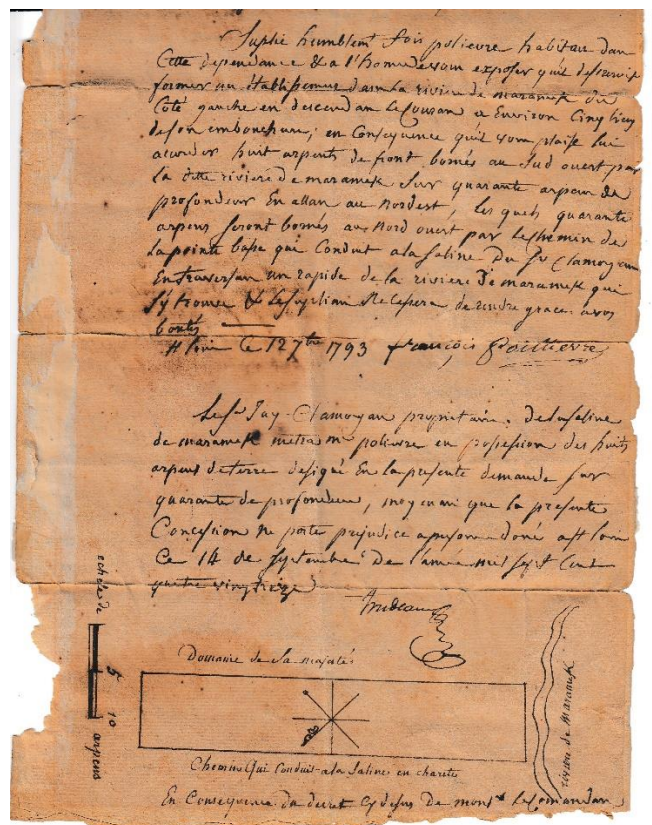 Suplie humblemt fois polievre habitan dan
Cette dependance & a l'honneur vous exposer qu'il desireroit
former un Etablissement dans la riviere de maramek du
Coté gauche en descendan le Couran a Environ Cinq lieus
de son embouchure; en Consequence qu'il vous plaise lui
acorder huit arpents de front bornés au Sud ouest par
la ditte riviere de maramek Sur quarante arpens de
profondeur En allan au Nordest, les quels quarante
arpens seront bornés au Nord ouest par le chemin de
la pointe base qui Conduit a la Saline Du Sr Clamorgan
En traversan un rapide de la riviere De maramek qui
s'y trouve & le suplian Ne Cessera de rendre grace a vos
bontés
St Louis Ce 12 7bre 1793 françois Poillievre
Le Sr Jaq. Clamorgan proprietaire de la saline
de maramek metra mr polievre en possession des huits
arpens de terre designé En la presente demande sur
quarante de profondeur, moyenant que la presente
Concession ne porte prejudice a personne doné a St Louis
Ce 14 de Septembre De l'année mil sept Cent
quatre vingt treize
Trudeau
echelle de
5 10
arpens
Domaine de Sa majesté
Chemin Qui Conduit a la Saline en charete
riviere de Maramek
En Consequence du decret Cy desus De monsr le Comandan